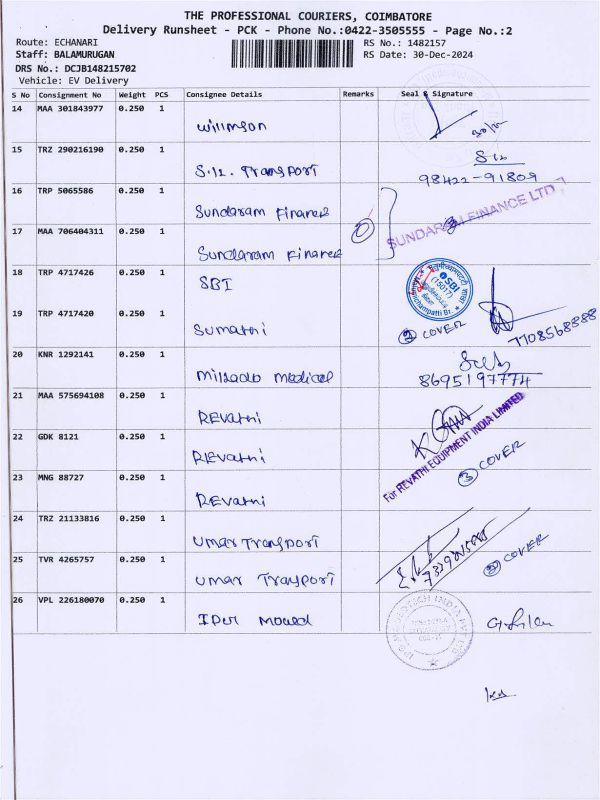 THE PROFESSIONAL COURIERS, COIMBATORE
Delivery Runsheet - PCK - Phone No.:0422-3505555 - Page No.:2
Route: ECHANARI
RS No.: 1482157
Staff: BALAMURUGAN
RS Date: 30-Dec-2024
DRS No.: DCJB148215702
Vehicle: EV Delivery
S No Consignment No Weight PCS Consignee Details Remarks Seal & Signature
14 MAA 301843977 0.250 1
15 TRZ 290216190 0.250 1 Transport
98422-91809
16 TRP 5065586 0.250 1 Sundaram Finance
SUNDARAM FINANCE LTD
17 MAA 706404311 0.250 1 Sundaram Finance
18 TRP 4717426 0.250 1 SBI
SBI
(15017)
19 TRP 4717420 0.250 1 Sumathi
2 COVER
7708568888
20 KNR 1292141 0.250 1 medical
8695197774
21 MAA 575694108 0.250 1 REvathi
For REVATHI EQUIPMENT INDIA LIMITED
22 GDK 8121 0.250 1 REvathi
3 COVER
23 MNG 88727 0.250 1 REvathi
24 TRZ 21133816 0.250 1 Umar Transport
2 COVER
25 TVR 4265757 0.250 1 Umar Transport
26 VPL 226180070 0.250 1